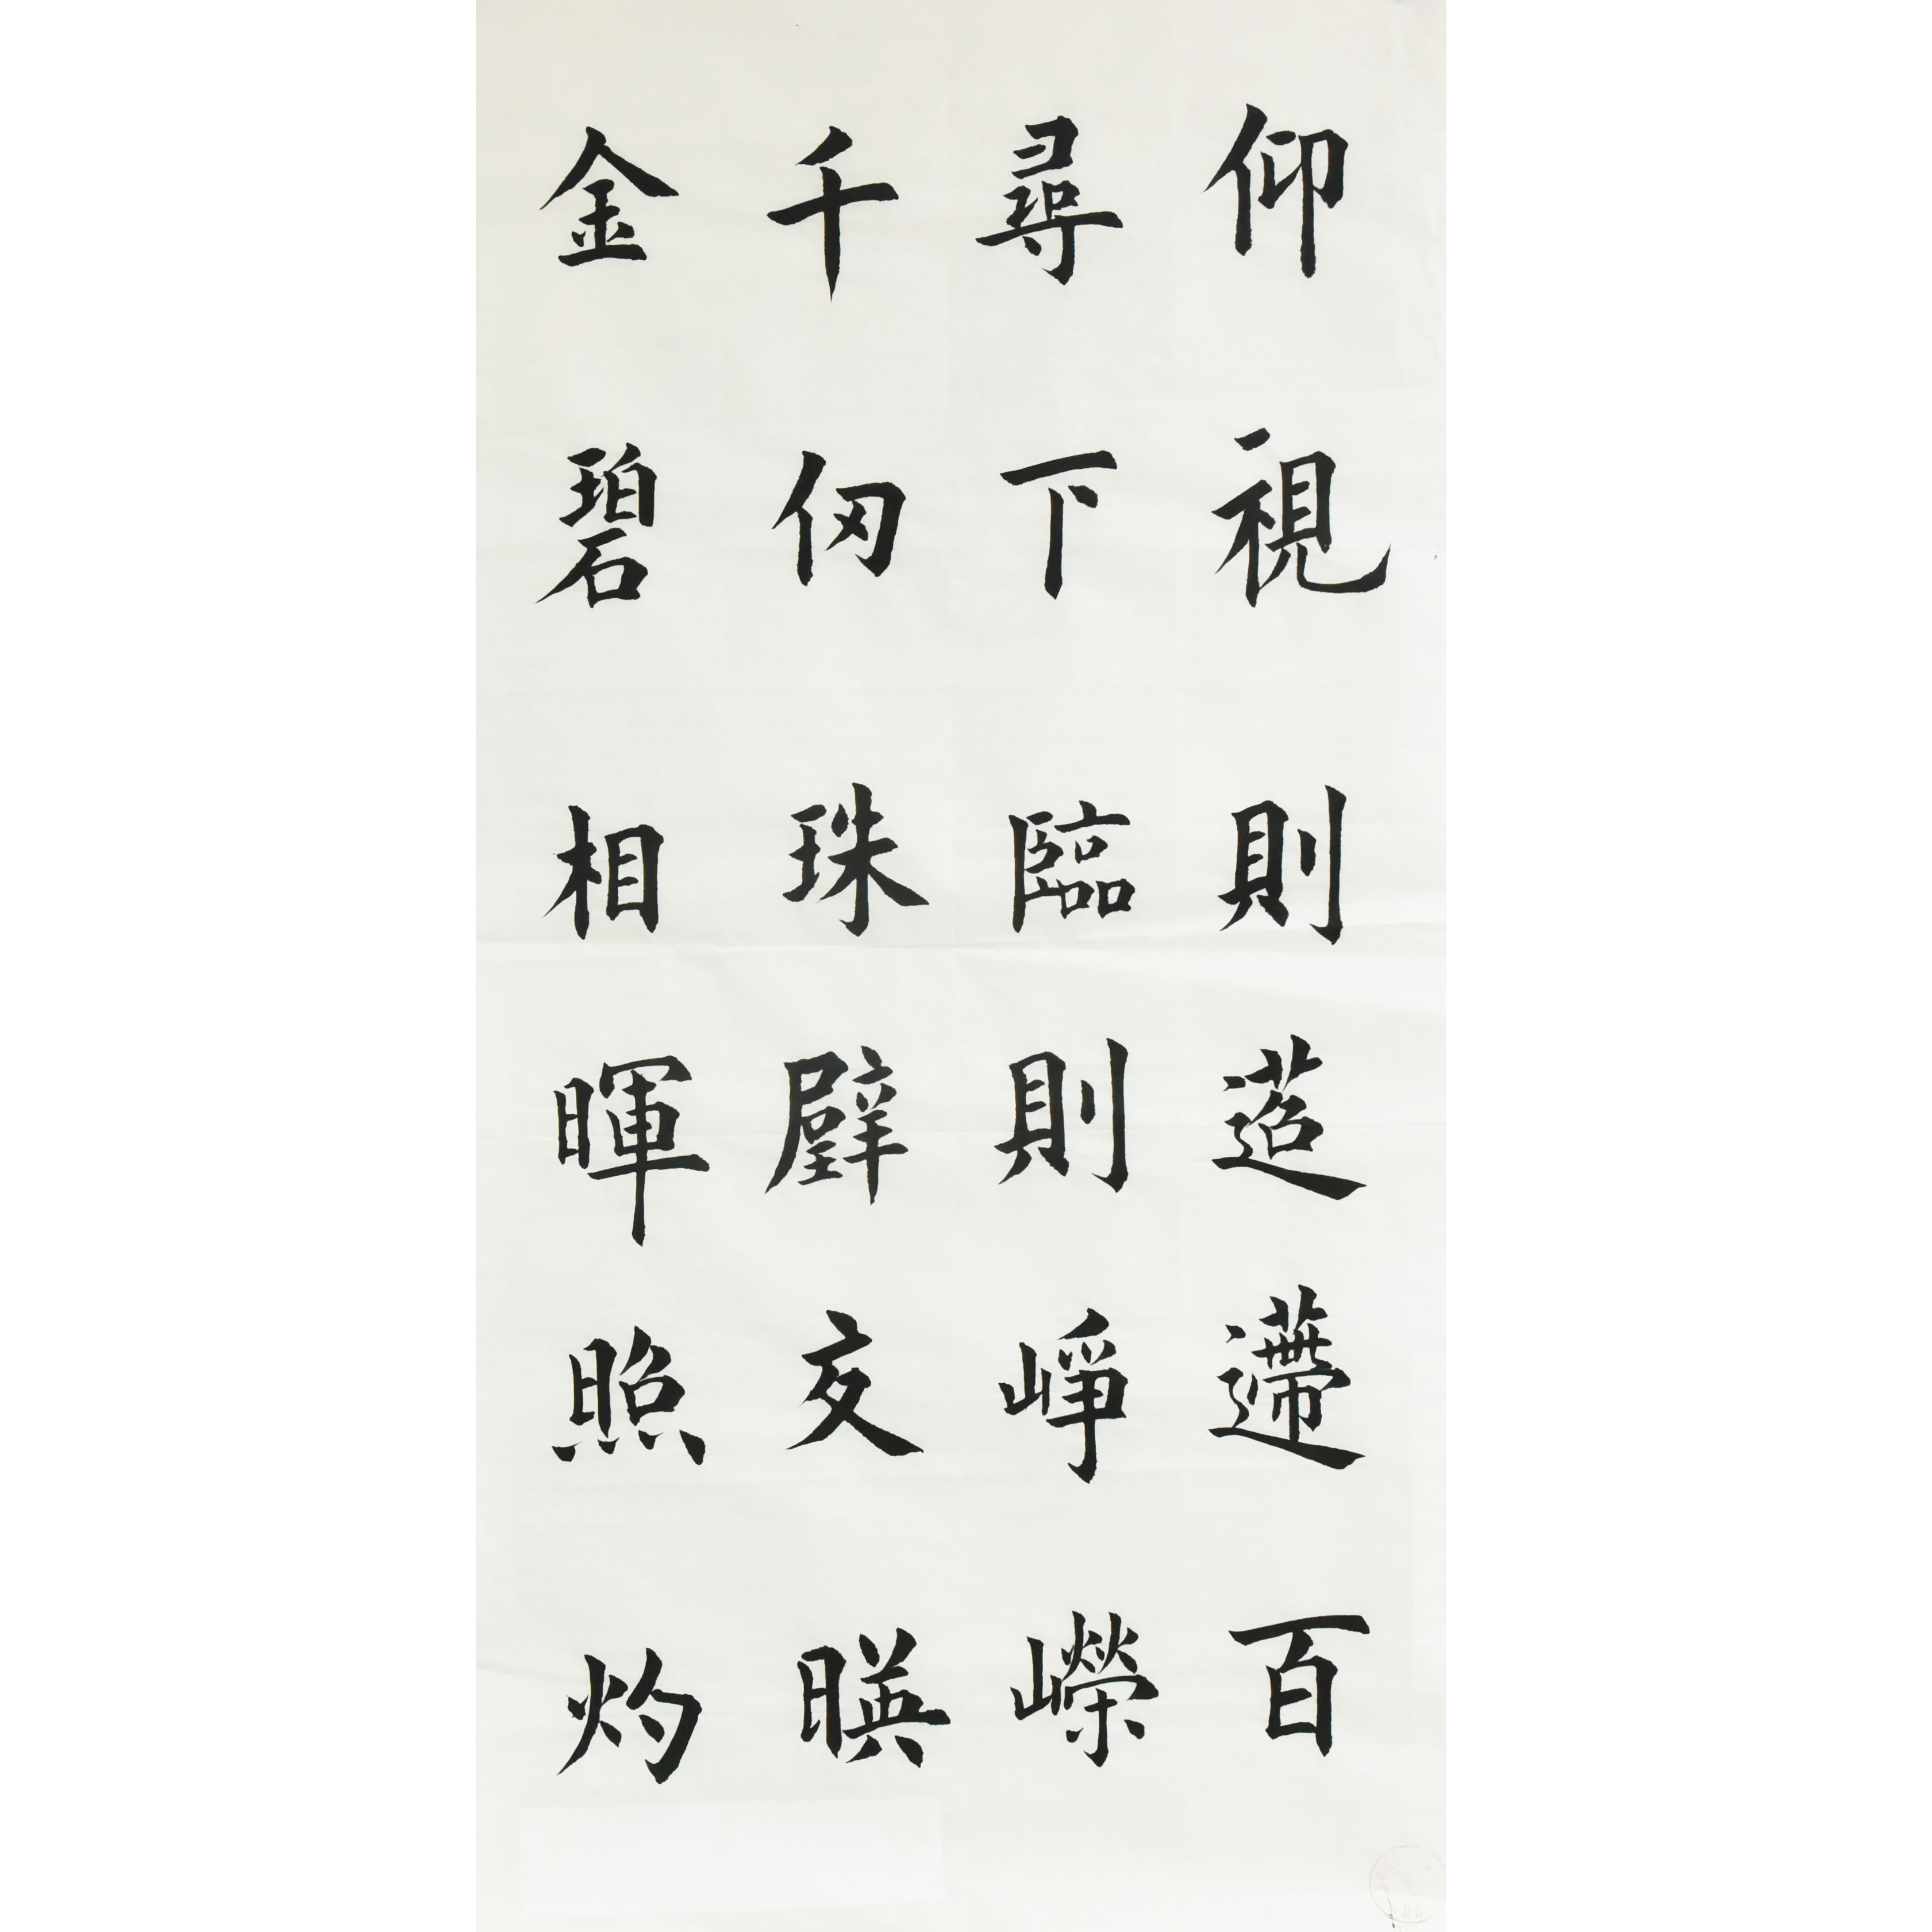 仰視則迢遰百
尋下臨則崢嶸
千仞珠壁交暎
金碧相暉照灼